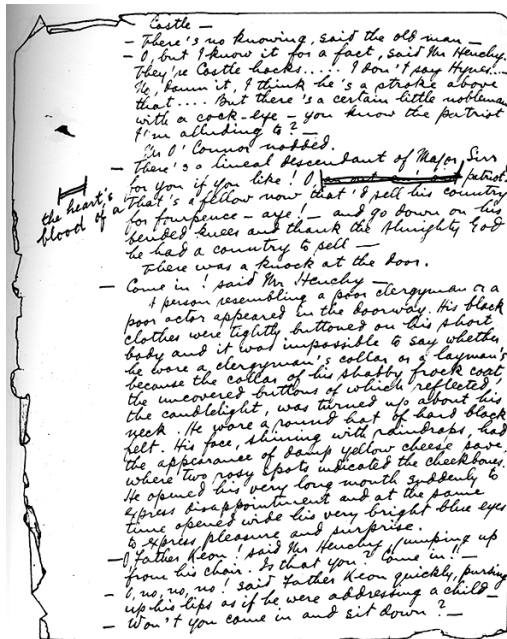 Castle —
— There's no knowing, said the old man —
— O, but I know it for a fact, said Mr Henchy.
They're Castle hacks..... I don't say Hynes....
No, damn it, I think he's a stroke above
that.... But there's a certain little nobleman
with a cock-eye — you know the patriot
I'm alluding to? —
Mr O'Connor nodded.
— There's a lineal descendant of Major Sirr
for you if you like! O, patriot!
the heart's
blood of a
That's a fellow now that'd sell his country
for fourpence — aye! — and go down on his
bended knees and thank the Almighty God
he had a country to sell —
There was a knock at the door.
— Come in! said Mr Henchy —
A person resembling a poor clergyman or a
poor actor appeared in the doorway. His black
clothes were tightly buttoned on his short
body and it was impossible to say whether
he wore a clergyman's collar or a layman's
because the collar of his shabby frock coat,
the uncovered buttons of which reflected
the candlelight, was turned up about his
neck. He wore a round hat of hard black
felt. His face, shining with raindrops, had
the appearance of damp yellow cheese save
where two rosy spots indicated the cheekbones.
He opened his very long mouth suddenly to
express disappointment and at the same
time opened wide his very bright blue eyes
to express pleasure and surprise.
— O, Father Keon! said Mr Henchy, jumping up
from his chair. Is that you? Come in! —
— O, no, no, no! said Father Keon quickly, pursing
up his lips as if he were addressing a child —
— Won't you come in and sit down? —